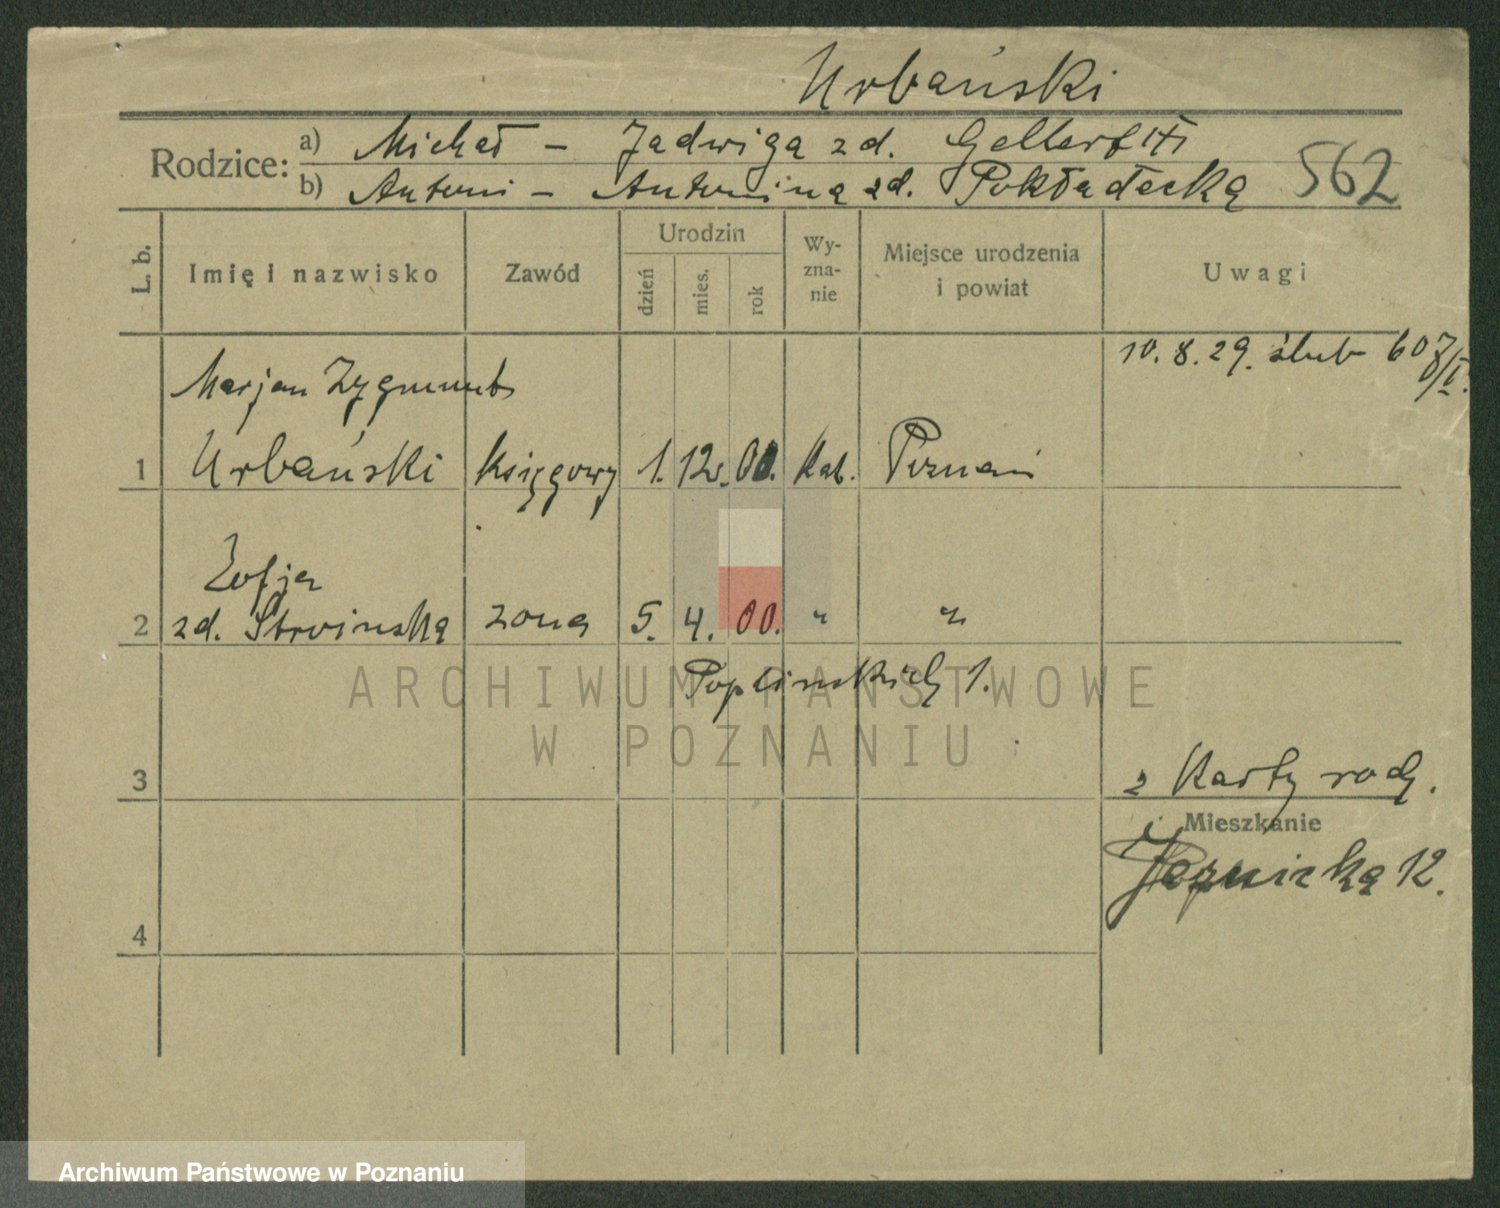 Urbański
Rodzice: a) Michał – Jadwiga zd.
b) Antoni – Antonina zd. Pokładecka 562
L. b. Imię i nazwisko Zawód Urodzin dzień mies. rok Wy-zna-nie Miejsce urodzenia i powiat Uwagi
10. 8. 29. ślub 607/
Marjan Zygmunt
1 Urbański księgowy 1. 12. 00. kat. Poznań
Zofja
2 zd. Stroinska żona 5. 4. 00. " "
Poplinskich 1.
ARCHIWUM PAŃSTWOWE
W POZNANIU
3 z Karty rodz.
Mieszkanie
12.
4
Archiwum Państwowe w Poznaniu